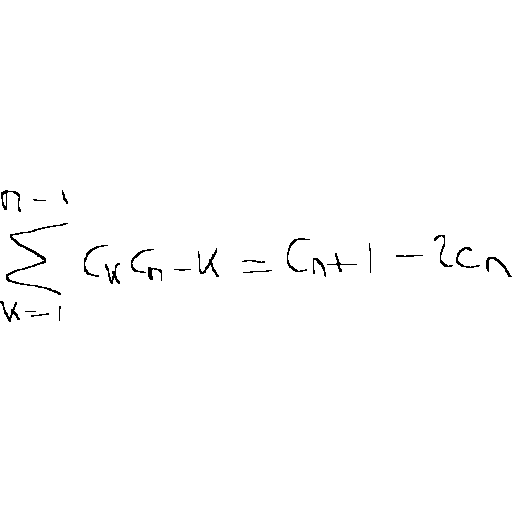 \sum_{k=1}^{n-1} C_k C_{n-k} = C_{n+1} - 2C_n